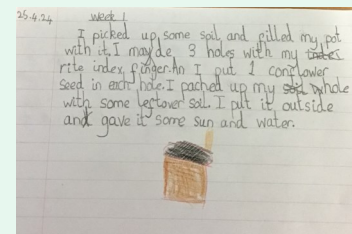 25.4.24 Week 1
I picked up some soil and filled my pot
with it. I mayde 3 holes with my
rite index finger. An I put 1 cornflower
seed in each hole. I pached up my hole
with some leftover soil. I put it outside
and gave it some sun and water.